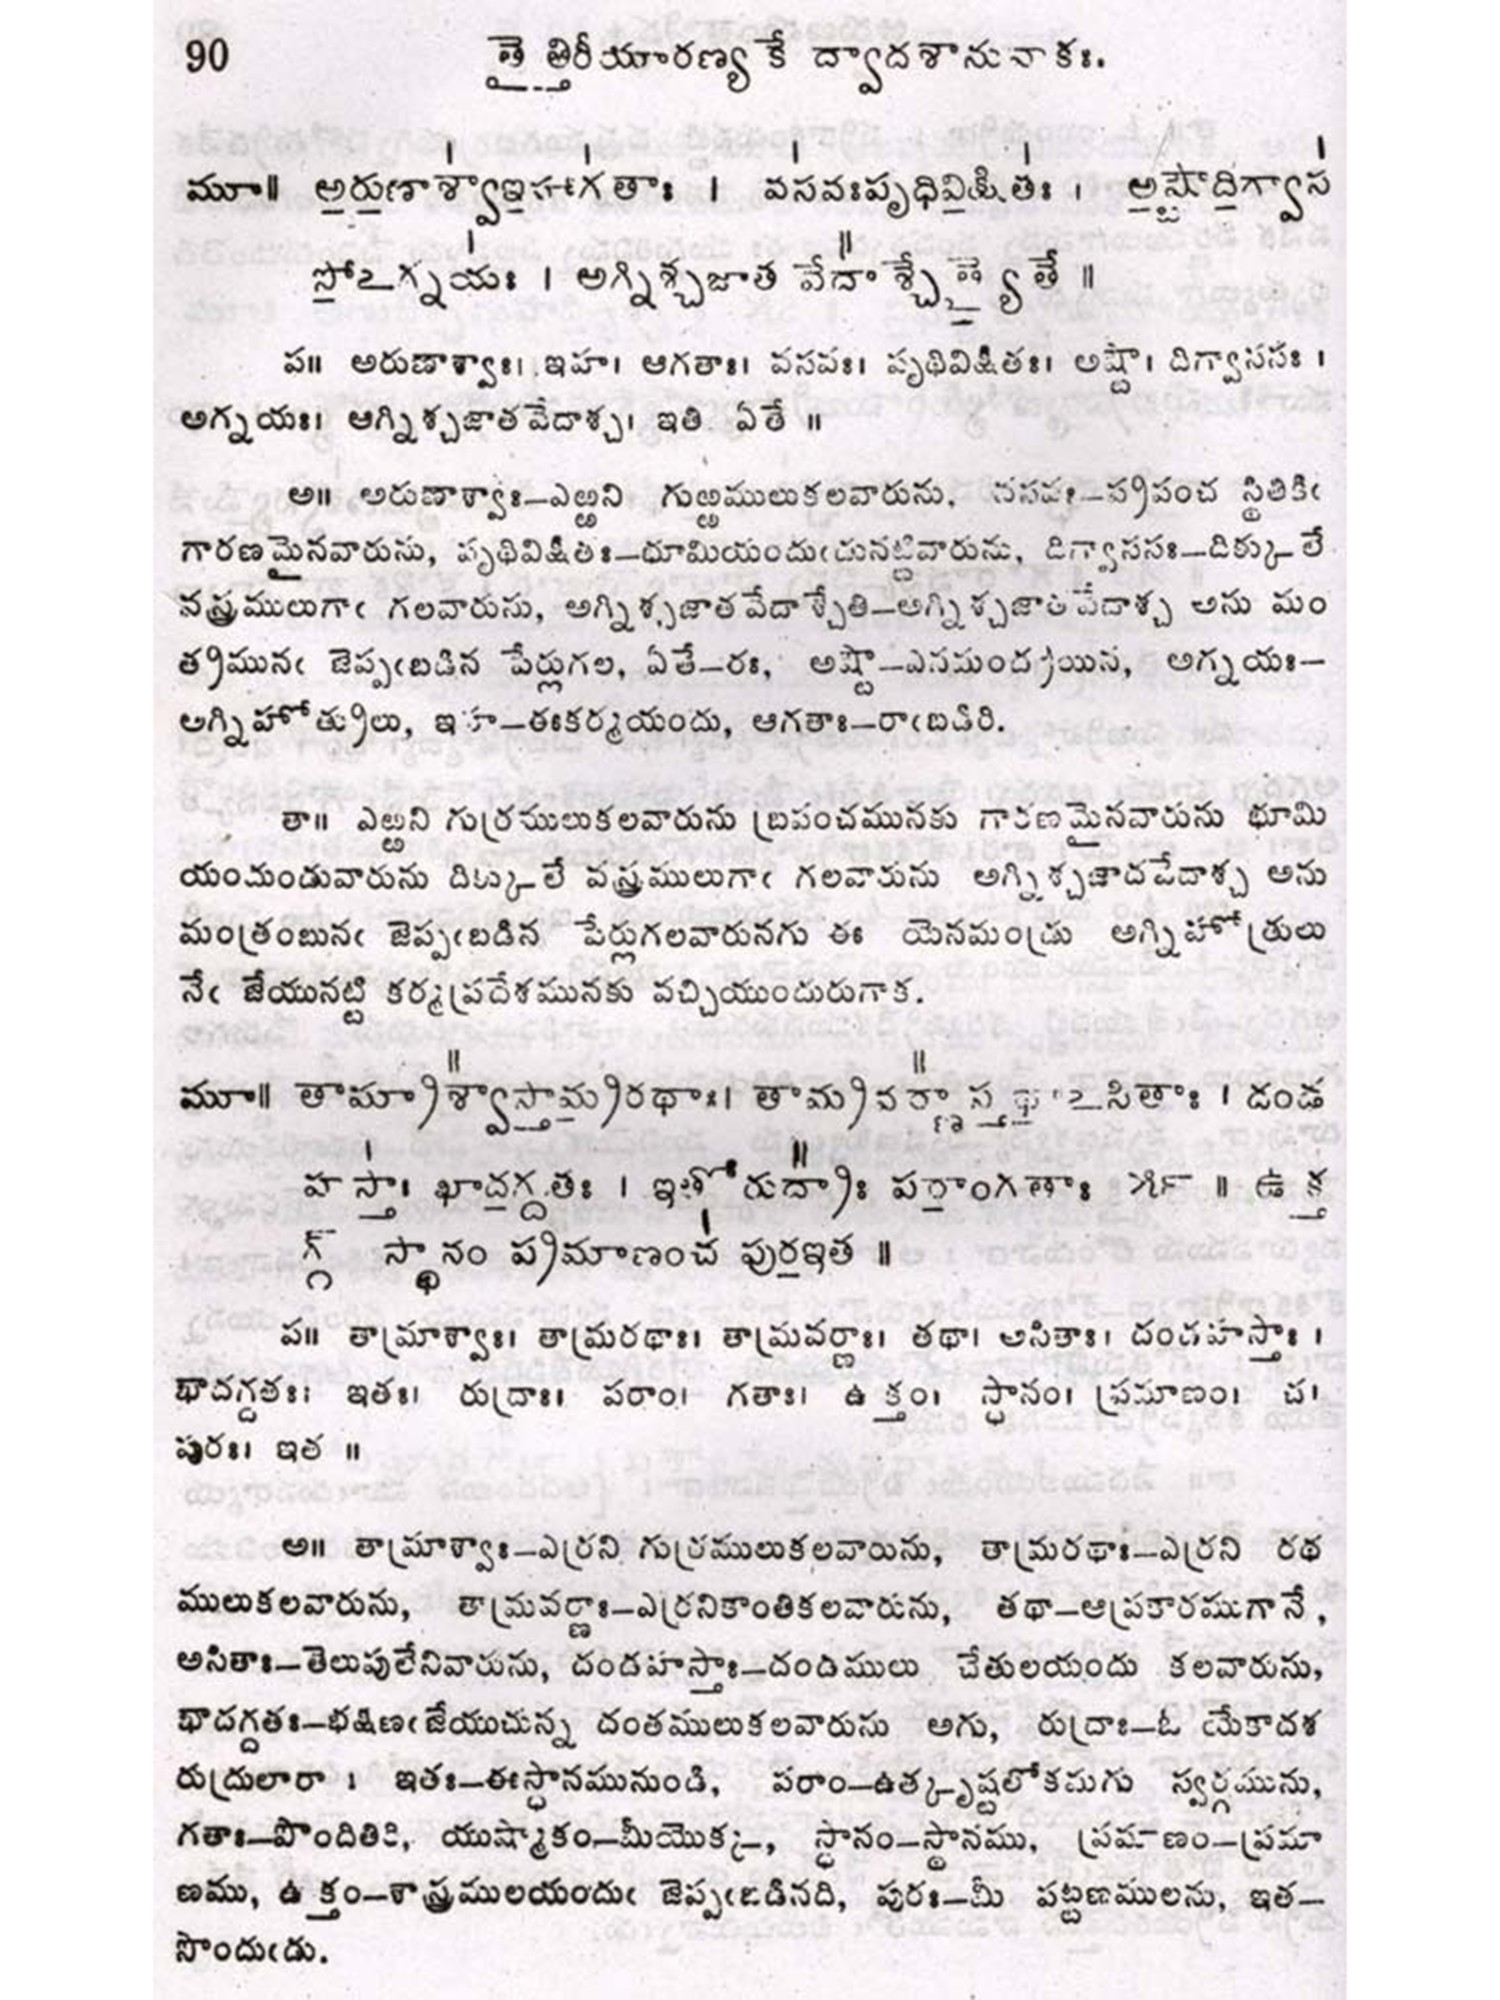 90 తైత్తిరీయారణ్యకే ద్వాదశానువాకః.
మూ॥ అ॒రు॒ణాశ్వా॑ఇ॒హాగ॑తాః । వస॑వఃపృథివి॒క్షిత॑ః । అ॒ష్టౌది॒గ్వాస॑
సో॒ఽగ్నయ॑ః । అగ్నిశ్చజాతవేదా᳚శ్చే॒త్యై॒తే ॥
ప॥ అరుణాశ్వాః। ఇహ। ఆగతాః। వసవః। పృథివిక్షితః। అష్టౌ। దిగ్వాససః ।
అగ్నయః। ఆగ్నిశ్చజాతవేదాశ్చ। ఇతి ఏతే ॥
అ॥ అరుణాశ్వాః—ఎఱ్ఱని గుఱ్ఱములుకలవారును, వసవః—ప్రపంచ స్థితికిఁ
గారణమైనవారును, పృథివిక్షితః—భూమియందుఁడునట్టివారును, దిగ్వాససః—దిక్కులే
వస్త్రములుగాఁ గలవారును, అగ్నిశ్చజాతవేదాశ్చేతి—అగ్నిశ్చజాతవేదాశ్చ అను మం
త్రమునఁ జెప్పఁబడిన పేర్లుగల, ఏతే—ఈ, అష్టౌ—ఎనమండ్రయిన, అగ్నయః—
అగ్నిహోత్రులు, ఇహ—ఈకర్మయందు, ఆగతాః—రాఁబడిరి.
తా॥ ఎఱ్ఱని గుర్రములుకలవారును ప్రపంచమునకు గారణమైనవారును భూమి
యందుండువారును దిక్కులే వస్త్రములుగాఁ గలవారును అగ్నిశ్చజాదవేదాశ్చ అను
మంత్రంబునఁ జెప్పఁబడిన పేర్లుగలవారునగు ఈ యెనమండ్రు అగ్నిహోత్రులు
నేఁ జేయునట్టి కర్మప్రదేశమునకు వచ్చియుందురుగాక.
మూ॥ తామ్రా᳚శ్వాస్తా॒మ్రరథాః। తామ్రవర్ణా᳚స్త॒థా॒ఽసితాః । దండ
హస్తా॑ః ఖాద॒గ్దతః । ఇతోరుద్రా᳚ః పరా॒ంగతాః ౫౯ ॥ ఉక్త॒
గ్గ్ స్థానం ప్రమాణంచ॑ పుర॒ఇత ॥
ప॥ తామ్రాశ్వాః। తామ్రరథాః। తామ్రవర్ణాః। తథా। అసితాః। దండహస్తాః ।
ఖాదగ్దతః। ఇతః। రుద్రాః। పరాం। గతాః। ఉక్తం। స్థానం। ప్రమాణం। చ।
పురః। ఇత ॥
అ॥ తామ్రాశ్వాః—ఎర్రని గుర్రములుకలవారును, తామ్రరథాః—ఎర్రని రథ
ములుకలవారును, తామ్రవర్ణాః—ఎర్రనికాంతికలవారును, తథా—ఆప్రకారముగానే,
అసితాః—తెలుపులేనివారును, దండహస్తాః—దండములు చేతులయందు కలవారును,
ఖాదగ్దతః—భక్షణఁజేయుచున్న దంతములుకలవారును అగు, రుద్రాః—ఓ యేకాదశ
రుద్రులారా । ఇతః—ఈస్థానమునుండి, పరాం—ఉత్కృష్టలోకమగు స్వర్గమును,
గతాః—పొందితిరి, యుష్మాకం—మీయొక్క, స్థానం—స్థానము, ప్రమాణం—ప్రమా
ణము, ఉక్తం—శాస్త్రములయందుఁ జెప్పఁబడినది, పురః—మీ పట్టణములను, ఇత—
పొందుఁడు.